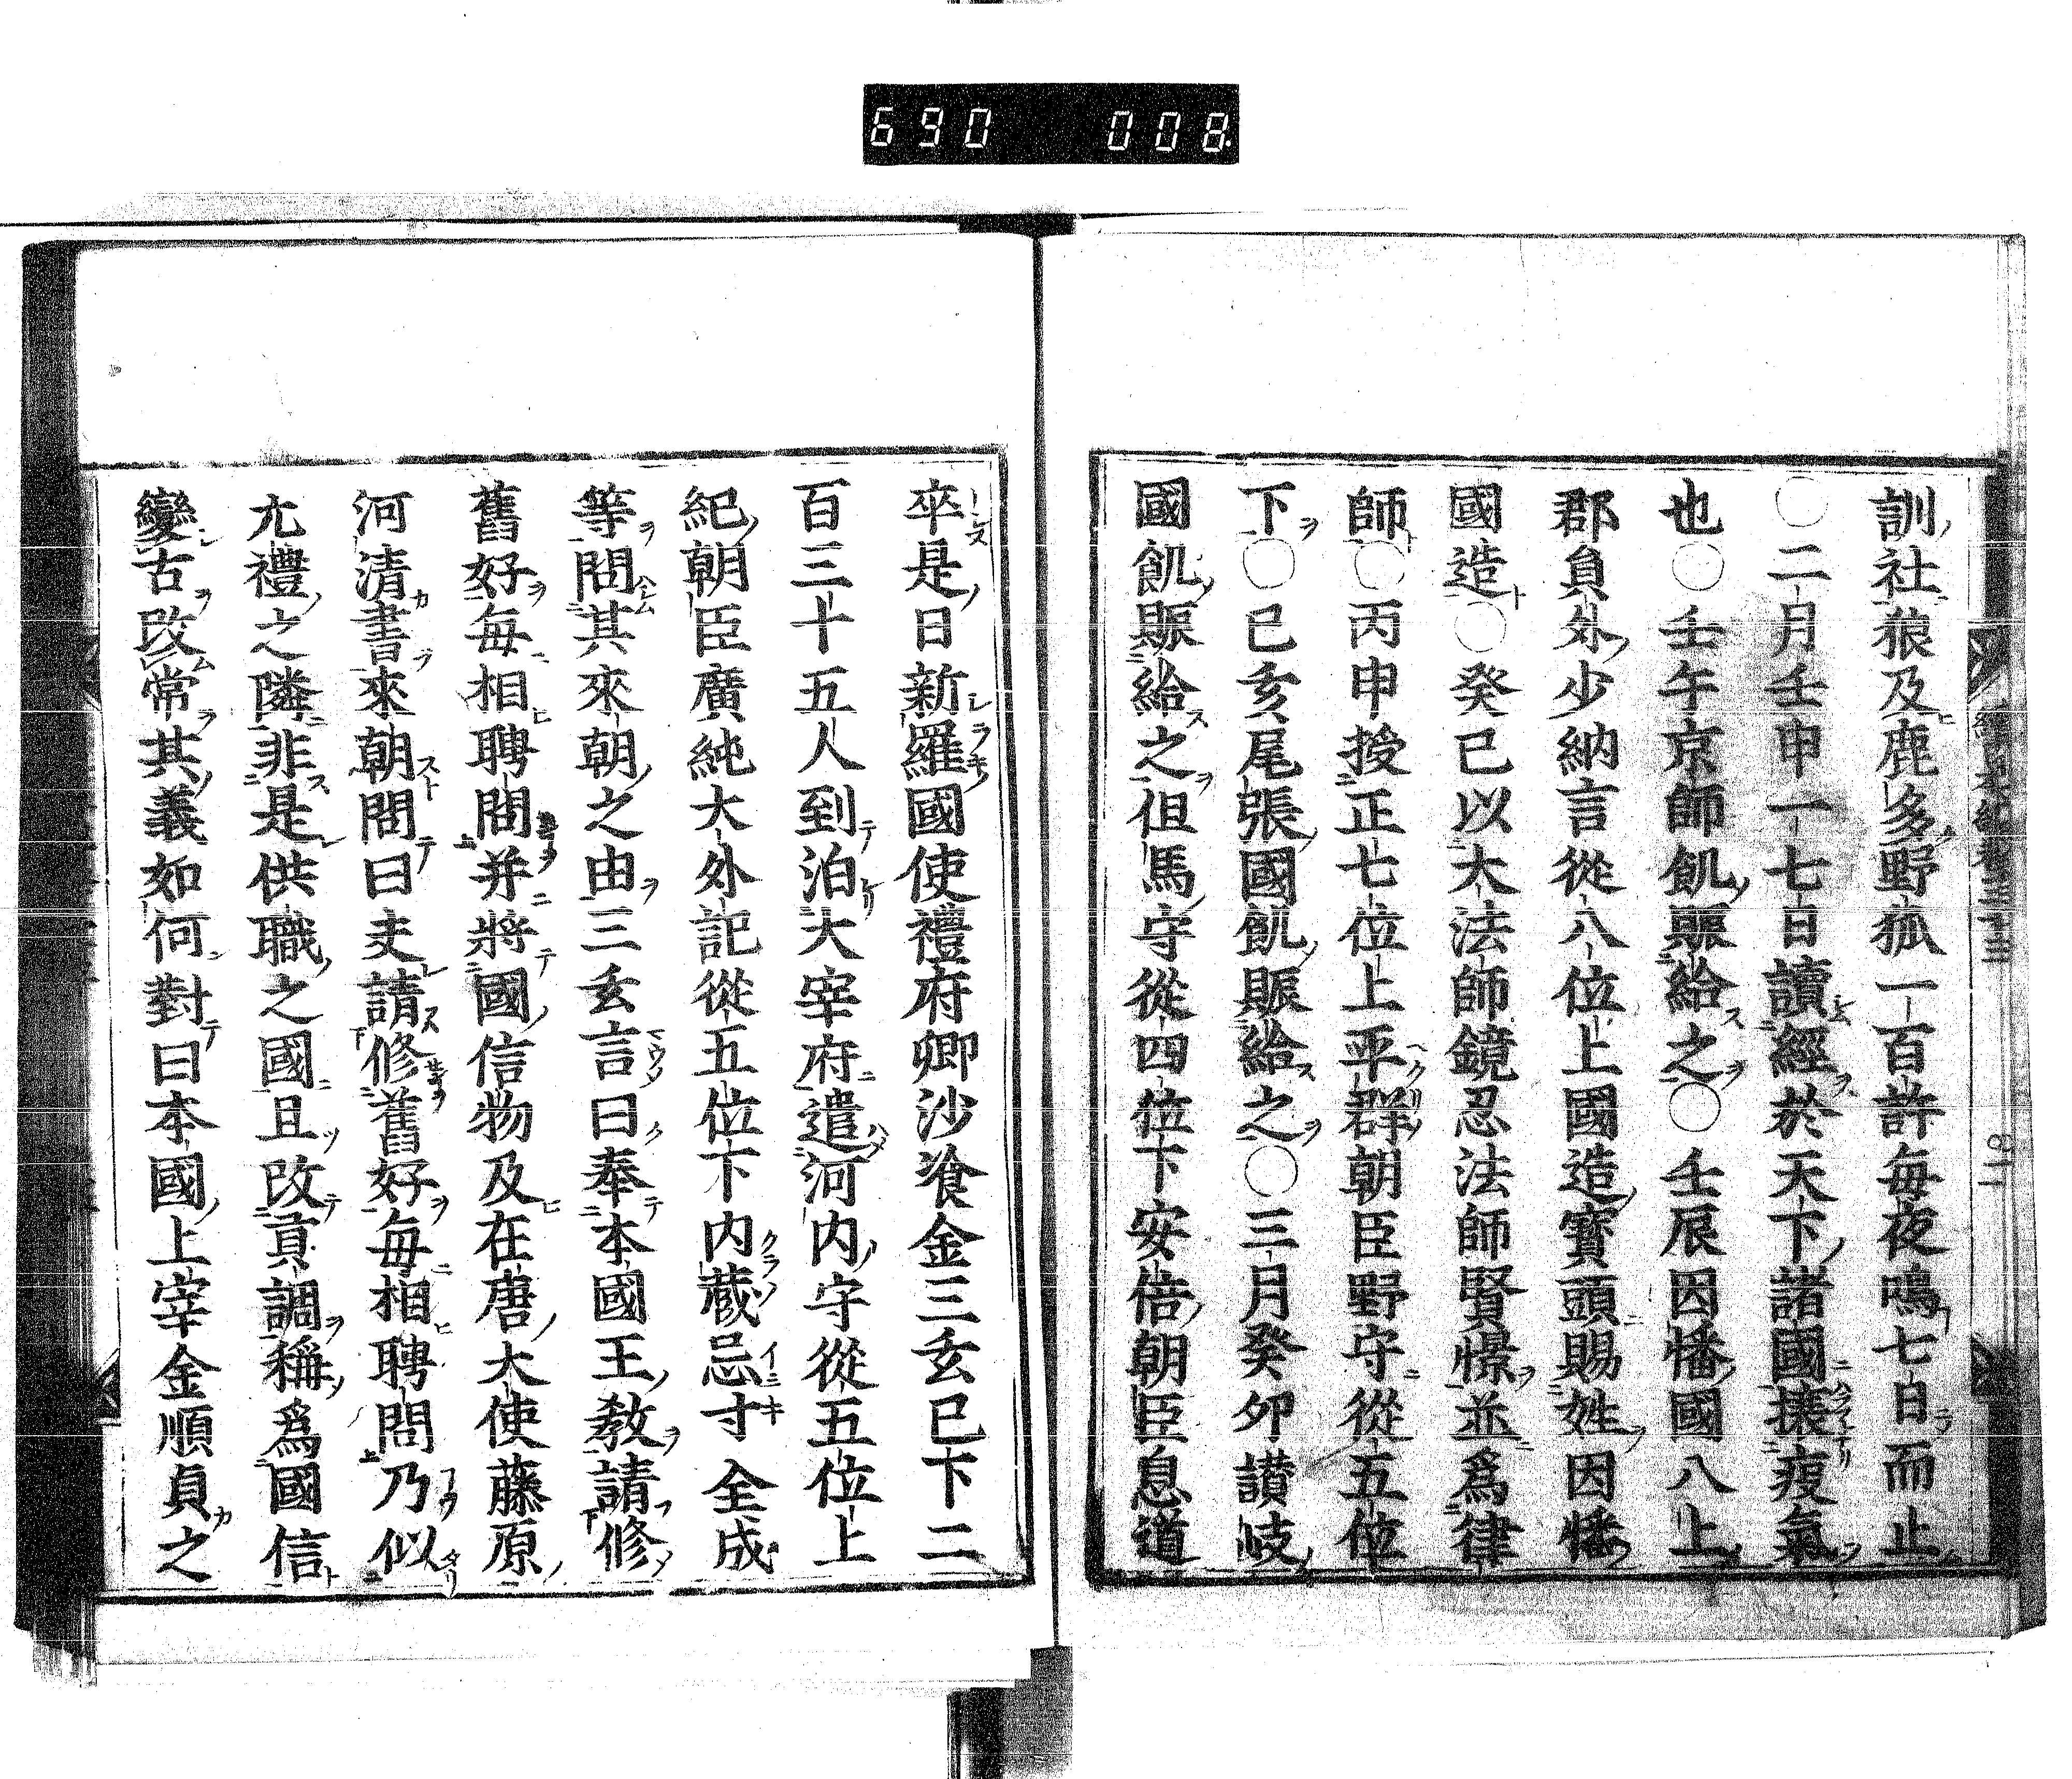 690 008
訓社狼及鹿多野狐一百許毎夜鳴七日而止
〇二月壬申一七日讀經於天下諸國攘疫氣
也〇壬午京師飢賑給之〇壬辰因幡國八上
郡員外少納言從八位上國造寳頭賜姓因幡
國造〇癸己以大法師鏡忍法師賢憬並爲律
師〇丙申授正七位上平群朝臣野守從五位
下〇己亥尾張國飢賑給之〇三月癸夘讃岐
國飢賑給之但馬守從四位下安倍朝臣息道
卒是日新羅國使禮府卿沙飡金三玄已下二
百三十五人到泊大宰府遣河内守從五位上
紀朝臣廣純大外記從五位下内藏忌寸全成
等問其來朝之由三玄言曰奉本國王教請修
舊好毎相聘問并將國信物及在唐大使藤原
河清書來朝問曰夫請修舊好毎相聘問乃似
亢禮之隣非是供職之國且改貢調稱爲國信
變古改常其義如何對曰本國上宰金順貞之